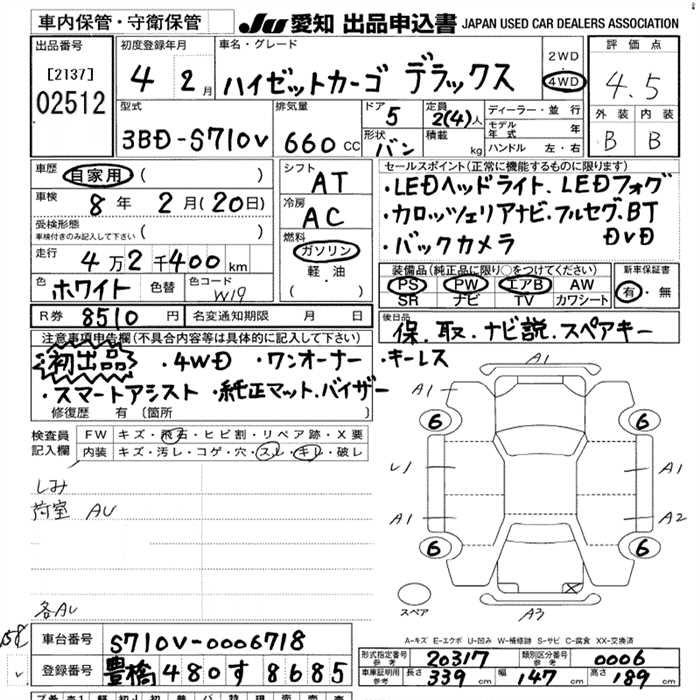 車内保管・守衛保管 JU 愛知 出品申込書 JAPAN USED CAR DEALERS ASSOCIATION
出品番号 [2137] 02512
初度登録年月 4 2月
車名・グレード ハイゼットカーゴ デラックス
2WD 4WD
評価点 4.5
型式 3BD-S710V
排気量 660 CC
ドア 5 定員 2(4)人
形状 バン 積載 kg
ディーラー・並行
モデル年式 年
ハンドル 左・右
外装 内装
B B
車歴 自家用 ( )
車検 8年 2月(20日)
受検形態 車検付きのみ記入して下さい ( )
走行 4万2千400km
色 ホワイト 色替 色コード W19
R券 8510円 名変通知期限 月 日
シフト AT
冷房 AC
燃料 ガソリン
軽・油
( )
セールスポイント(正常に機能するものに限ります)
・LEDヘッドライト、LEDフォグ
・カロッツェリアナビ・フルセグ・BT
・バックカメラ DVD
装備品(純正品に限り○をつけてください) 新車保証書
PS PW エアB AW 有・無
SR ナビ TV カワシート
後日品 保・取・ナビ説・スペアキー
注意事項申告欄(不具合内容等は具体的に記入して下さい)
・初出品 ・4WD ・ワンオーナー ・キーレス
・スマートアシスト ・純正マット・バイザー
修復歴 有 〔箇所 〕
検査員記入欄
FW キズ・飛石・ヒビ割・リペア跡・X要
内装 キズ・汚レ・コゲ・穴・スレ・キレ・破レ
しみ
荷室 AU
各AU
A1
A1
6 6
U1 A1
A1 A2
6 6
スペア A3
A-キズ E-エクボ U-凹み W-補修跡 S-サビ C-腐食 XX-交換済
車台番号 S710V-0006718
登録番号 豊橋 480 す 8685
形式指定番号 参考 20317 類別区分番号 参考 0006
車庫証明用 参考 長さ 339cm 幅 147cm 高さ 189cm